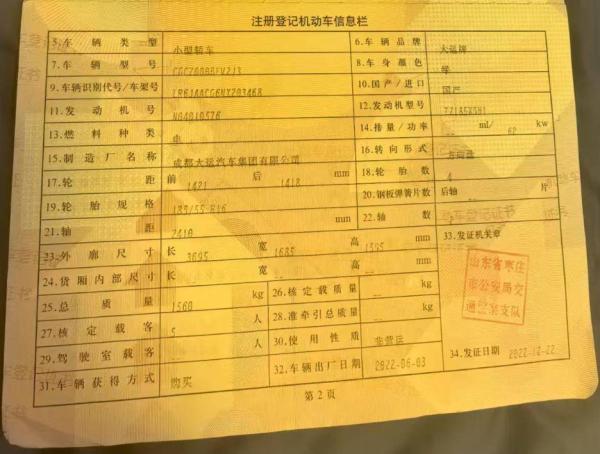 注册登记机动车信息栏
5.车辆类型 小型轿车 6.车辆品牌 大运牌
7.车辆型号 8.车身颜色 绿
9.车辆识别代号/车架号 10.国产/进口 国产
11.发动机号 12.发动机型号
13.燃料种类 电 14.排量/功率 -- ml/ kw
15.制造厂名称 成都大运汽车集团有限公司 16.转向形式 方向盘
17.轮距 前 1421 后 1418 mm 18.轮胎数 4
19.轮胎规格 185/55 R16 20.钢板弹簧片数 后轴 片
21.轴距 2410 mm 22.轴数
23.外廓尺寸 长 3695 宽 1685 高 1595 mm 33.发证机关章
24.货厢内部尺寸 长 宽 高 mm
山东省枣庄
市公安局交
通警察支队
25.总质量 1560 kg 26.核定载质量 -- kg
27.核定载客 5 人 28.准牵引总质量 -- kg
29.驾驶室载客 -- 人 30.使用性质 非营运
31.车辆获得方式 购买 32.车辆出厂日期 2022-06-03 34.发证日期 2022-12-22
第2页